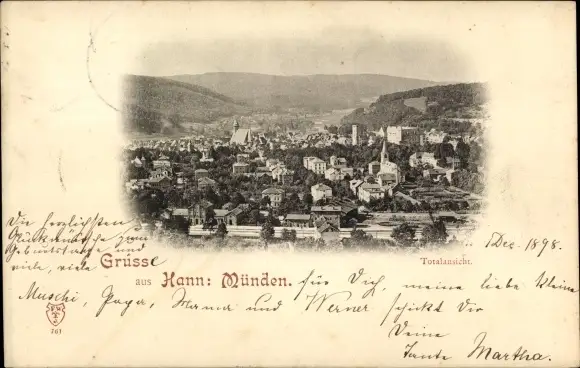 Die herzlichsten
Glückwünsche zum
Geburtstage und
viele, viele
Grüsse
aus Hann: Münden.
Totalansicht.
1 Dec. 1898.
für Dich, meine liebe kleine
Muschi, Papa, Mama und Werner schickt Dir
Deine
Tante Martha.
761